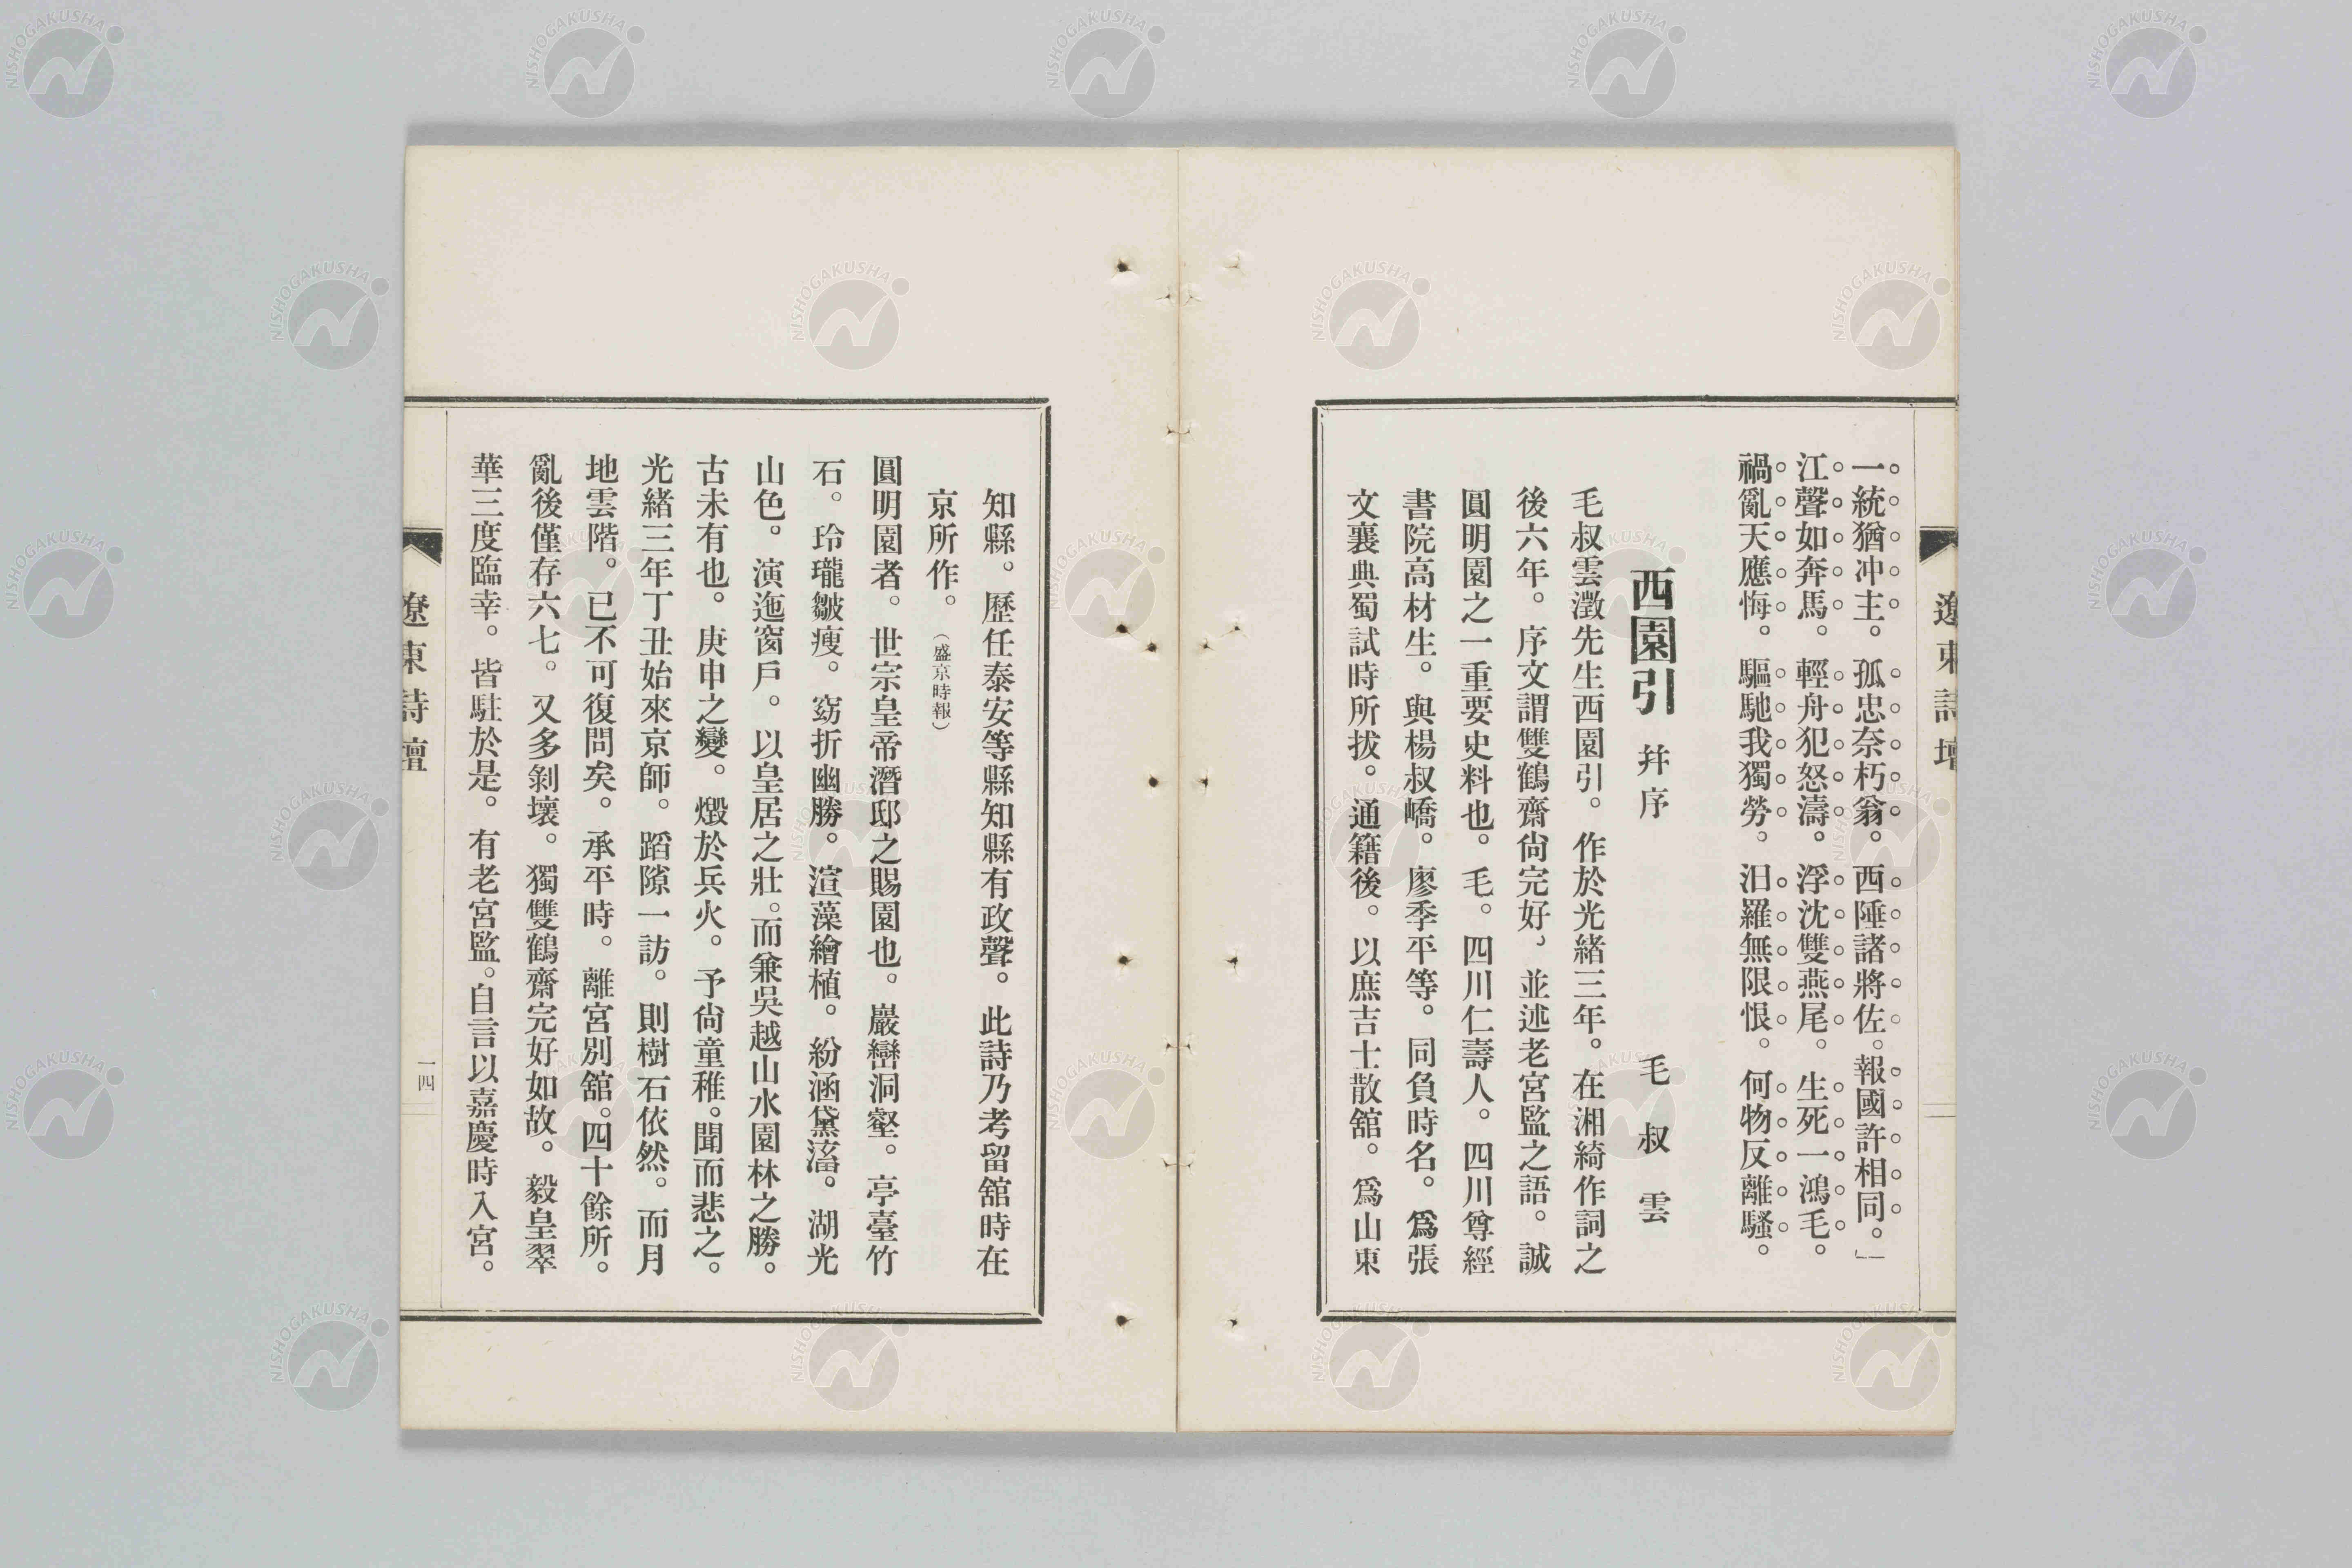 遼東詩壇
一統猶冲主。孤忠奈朽翁。西陲諸將佐。報國許相同。」
江聲如奔馬。輕舟犯怒濤。浮沈雙燕尾。生死一鴻毛。
禍亂天應悔。驅馳我獨勞。汨羅無限恨。何物反離騷。
西園引 幷序 毛叔雲
毛叔雲澂先生西園引。作於光緒三年。在湘綺作詞之
後六年。序文謂雙鶴齋尙完好、並述老宮監之語。誠
圓明園之一重要史料也。毛。四川仁壽人。四川尊經
書院高材生。與楊叔嶠。廖季平等。同負時名。爲張
文襄典蜀試時所拔。通籍後。以庶吉士散舘。爲山東
知縣。歷任泰安等縣知縣有政聲。此詩乃考留舘時在
京所作。（盛京時報）
圓明園者。世宗皇帝潛邸之賜園也。巖巒洞壑。亭臺竹
石。玲瓏皺瘦。窈折幽勝。渲藻繪植。紛涵黛滀。湖光
山色。演迤窗戶。以皇居之壯。而兼吳越山水園林之勝。
古未有也。庚申之變。燬於兵火。予尙童稚。聞而悲之。
光緒三年丁丑始來京師。蹈隙一訪。則樹石依然。而月
地雲階。已不可復問矣。承平時。離宮別舘。四十餘所。
亂後僅存六七。又多剝壞。獨雙鶴齋完好如故。毅皇翠
華三度臨幸。皆駐於是。有老宮監。自言以嘉慶時入宮。
遼東詩壇
一四
NISHOGAKUSHA